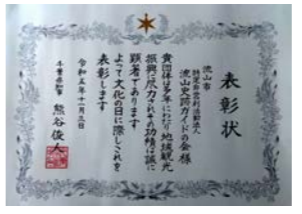 表彰状
流山市
特定非営利活動法人
流山史跡ガイドの会様
貴団体は多年にわたり地域観光
振興に尽力されその功績は誠に
顕著であります
よって文化の日に際しこれを
表彰します
令和五年十一月三日
千葉県知事
熊谷俊人